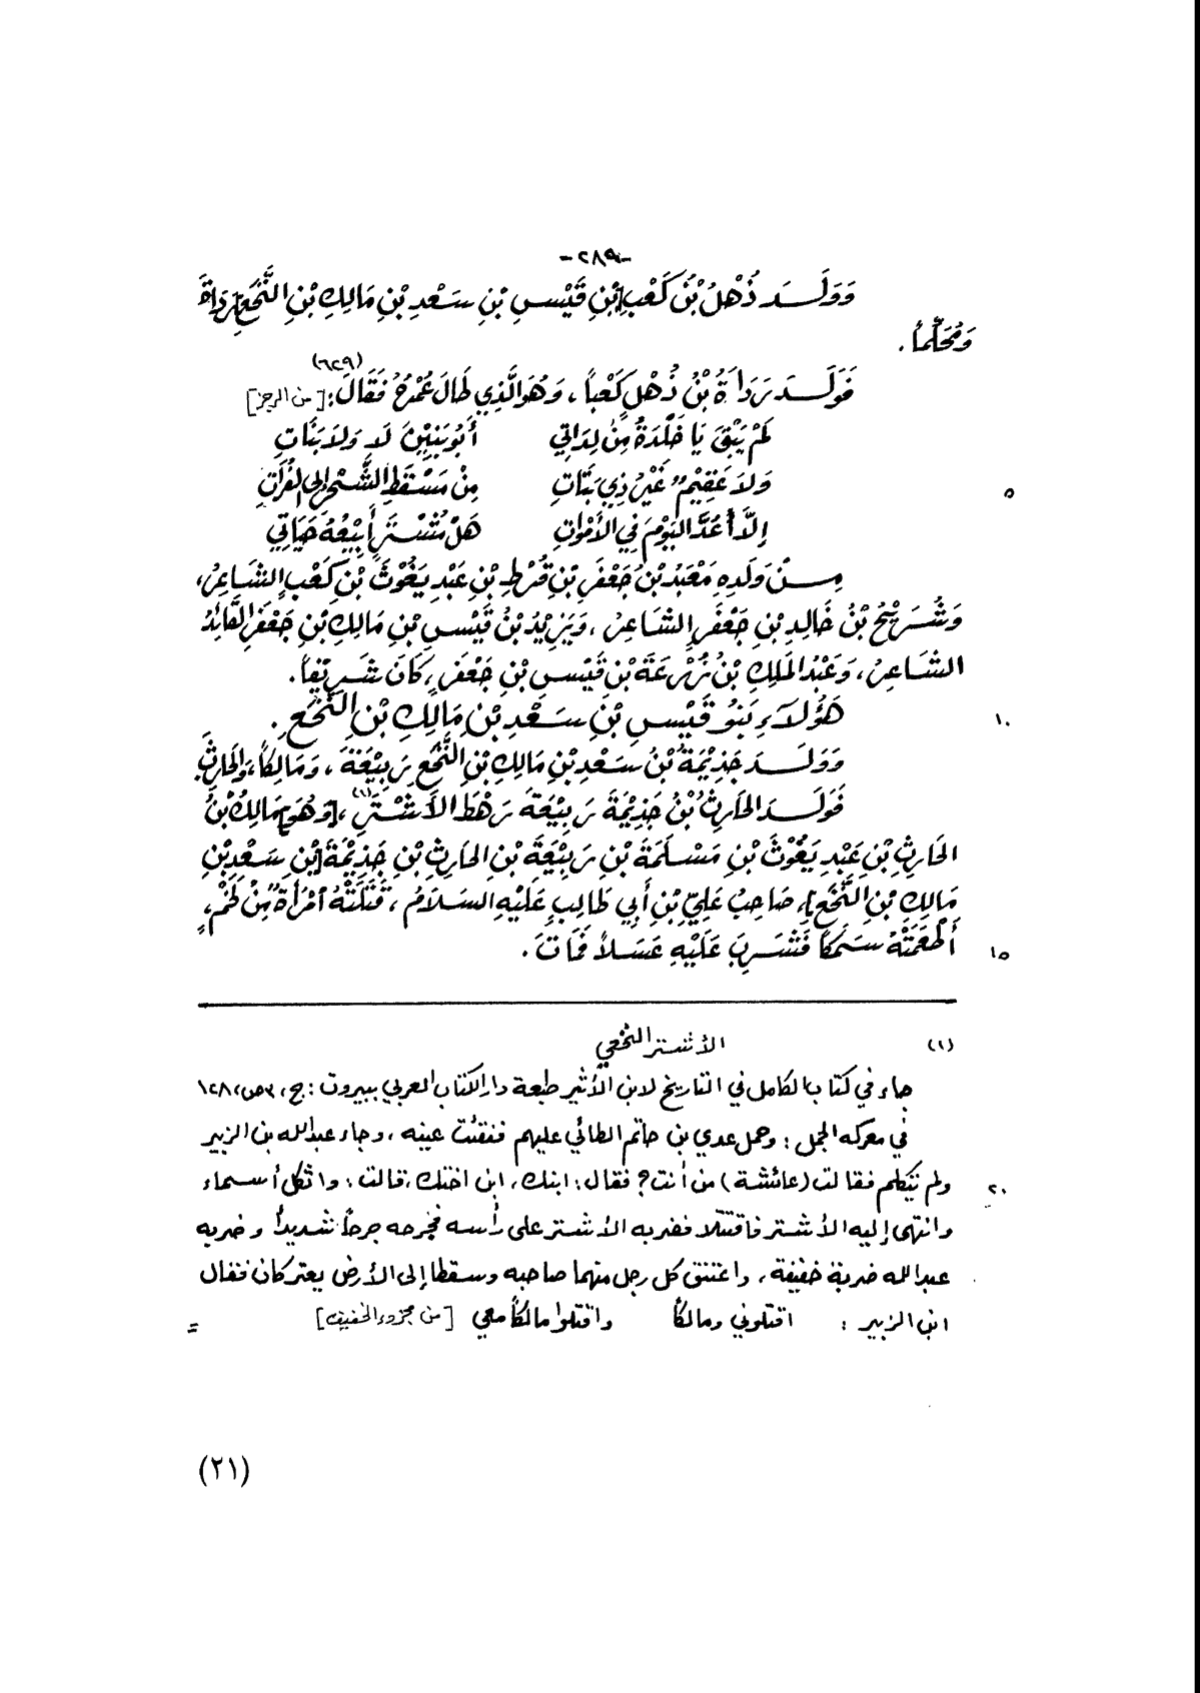 -٢٨٩-
وَوَلَـــدَ ذُهْلُ بْنُ كَعْبِ [بْنِ قَيْسِ بْنِ سَعْدِ بْنِ مَالِكِ بْنِ النَّخَعِ] رَدَاةَ
وَمُحَلِّماً .
فَوَلَـــدَ رَدَاةُ بْنُ ذُهْلٍ كَعْباً ، وَهُوَ الَّذِي طَالَ عُمْرُهُ فَقَالَ: (٦٢٩) [من الرجز]
لَمْ يَبْقَ يَا خَلْدَةُ مِنْ لِدَاتِي أَبُو بَنِيْنَ لَا وَلَا بَنَاتِ
وَلَا عَقِيْمٌ غَيْرُ ذِي بَتَاتِ مِنْ مَسْقَطِ الشَّحْرِ إلى الفُرَاتِ ٥
إِلَّا أُعَدُّ اليَوْمَ فِي الأَمْوَاتِ هَلْ مُشْتَرٍ أَبِيْعُهُ حَيَاتِي
مِـــنْ وَلَدِهِ مَعْبَدُ بْنُ جَعْفَرِ بْنِ قُرْطِ بْنِ عَبْدِ يَغُوْثَ بْنِ كَعْبٍ الشَاعِرُ،
وَشُرَيْحُ بْنُ خَالِدِ بْنِ جَعْفَرٍ الشَاعِرُ ، وَيَزِيْدُ بْنُ قَيْسِ بْنِ مَالِكِ بْنِ جَعْفَرٍ القَائِدُ
الشَاعِرُ ، وَعَبْدُ المَلِكِ بْنُ زُرْعَةَ بْنِ قَيْسِ بْنِ جَعْفَرٍ ، كَانَ شَرِيْفاً .
هَؤُلَاءِ بَنُو قَيْسِ بْنِ سَعْدِ بْنِ مَالِكِ بْنِ النَّخَعِ . ١٠
وَوَلَـــدَ جَذِيْمَةُ بْنُ سَعْدِ بْنِ مَالِكِ بْنِ النَّخَعِ رَبِيْعَةَ ، وَمَالِكاً، وَالحَارِثَ.
فَوَلَـــدَ الحَارِثُ بْنُ جَذِيْمَةَ رَبِيْعَةَ رَهْطَ الأَشْتَرِ (١) ، [وَهُوَ] مَالِكُ بْنُ
الحَارِثِ بْنِ عَبْدِ يَغُوْثَ بْنِ مَسْلَمَةَ بْنِ رَبِيْعَةَ بْنِ الحَارِثِ بْنِ جَذِيْمَةَ [بْنِ سَعْدِ بْنِ
مَالِكِ بْنِ النَّخَعِ]، صَاحِبُ عَلِيِّ بْنِ أَبِي طَالِبٍ عَلَيْهِ السَلَامُ ، قَتَلَتْهُ امْرَأَةٌ مِنْ لَخْمٍ،
أَطْعَمَتْهُ سَمَكاً فَشَرِبَ عَلَيْهِ عَسَلاً فَمَاتَ . ١٥
(١) الأشتر النخعي
جاء في كتاب الكامل في التاريخ لابن الأثير طبعة دار الكتاب العربي ببيروت : ج، ٣ ص، ١٢٨
في معركه الجمل : وحمل عدي بن حاتم الطائي عليهم ففقئت عينه ، وجاء عبدالله بن الزبير
ولم يتكلم فقالت (عائشة) من أنت؟ فقال: ابنك، ابن اختك، قالت : واثكل أسماء ٢٠
وانتهى إليه الأشتر فاقتتلا فضربه الأشتر على رأسه فجرحه جرحاً شديداً وضربه
عبدالله ضربة خفيفة ، واعتنق كل رجل منهما صاحبه وسقطا إلى الأرض يعتركان فقال
ابن الزبير : اقتلوني ومالكاً واقتلوا مالكاً معي [من مجزوء الخفيف] =
(٢١)